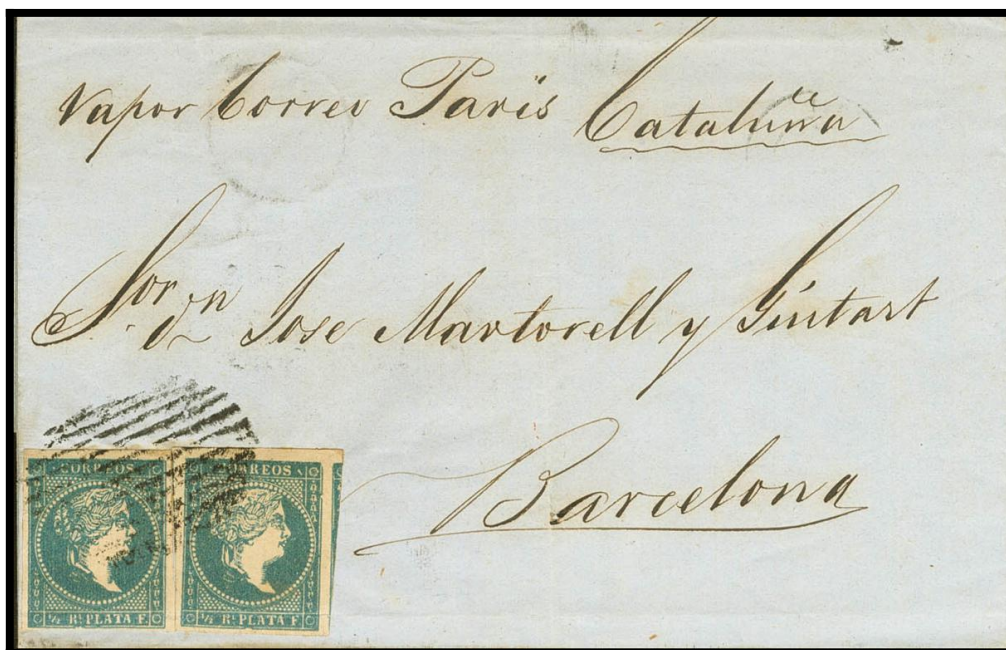 Vapor Correo Paris Cataluña
Sor dn Jose Martorell y Guitart
Barcelona
CORREOS CORREOS
½ Rl. PLATA F. ½ Rl. PLATA F.